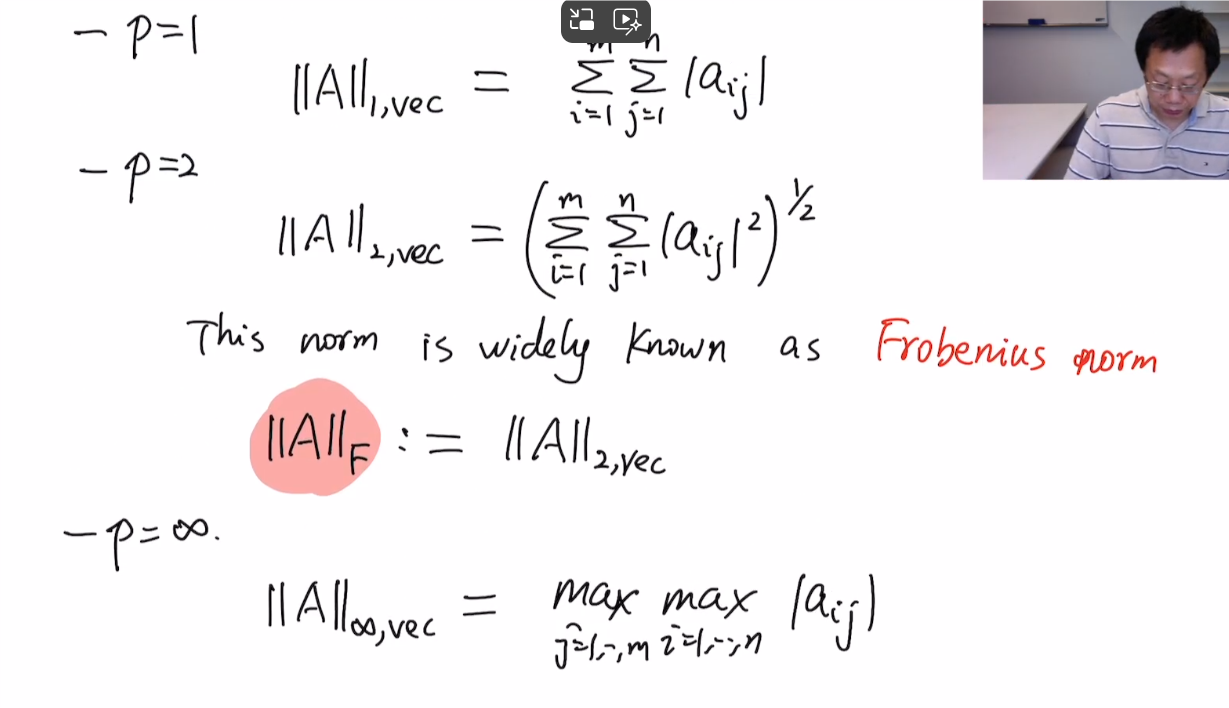 – p=1
||A||₁,vec = Σᵢ₌₁ᵐ Σⱼ₌₁ⁿ |aᵢⱼ|
– p=2
||A||₂,vec = (Σᵢ₌₁ᵐ Σⱼ₌₁ⁿ |aᵢⱼ|²)^½
This norm is widely known as Frobenius norm
||A||_F := ||A||₂,vec
– p=∞.
||A||_∞,vec = max_{j=1,..,m} max_{i=1,..,n} |aᵢⱼ|